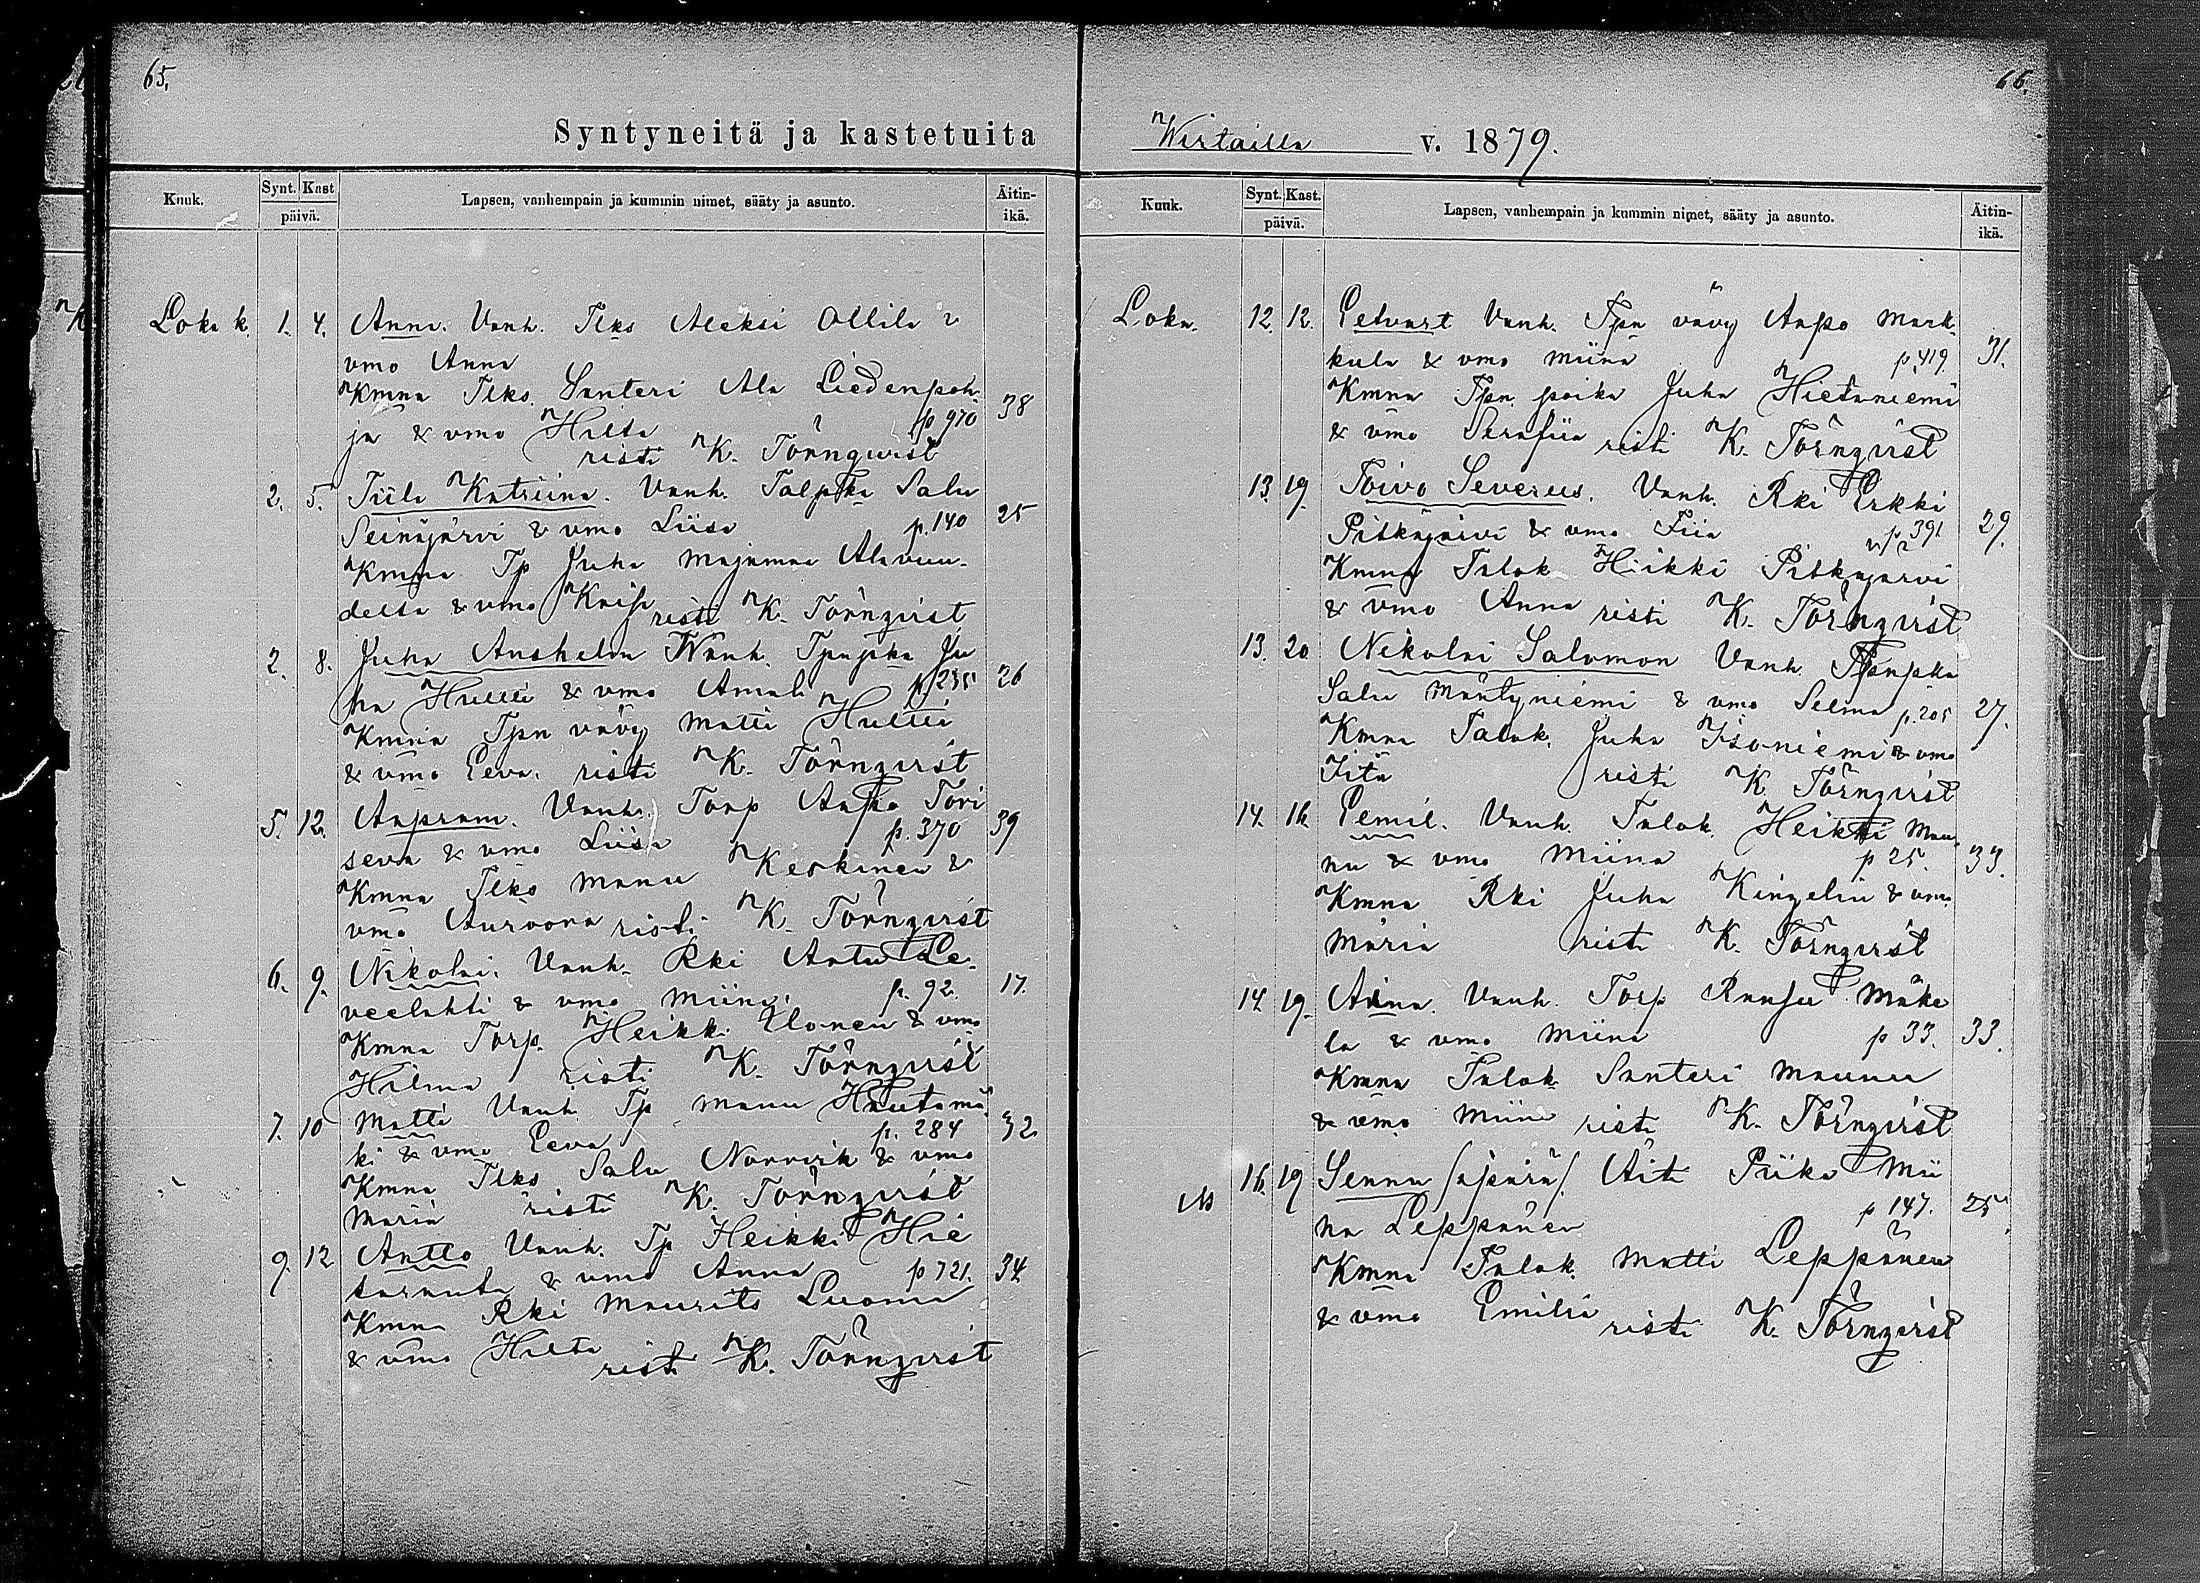 65.
Syntyneitä ja kastetuita
Kuuk. Synt. Kast päivä. Lapsen, vanhempain ja kummin nimet, sääty ja asunto. Äitin-ikä.
Loka k. 1. 4. Anni. Vanh. Tlks Aleksi Ollila &
vmo Anna
Kmna Tlks. Santeri Ala Liedenpoh-
ja & vmo Hilta p 970 38
risti K. Törnqvist
2. 5. Tiila Katriina. Vanh. Talpka Salu
Seinäjärvi & vmo Liisa p. 140 25
Kmna Tp Juha Majamaa Alavuu-
delta & vmo Kaisa risti K. Törnqvist
2. 8. Juha Anshelm Vanh. Tpnpka Ju
ha Hulli & vmo Amali p 235 26
Kmna Tpn vävy Matti Hulli
& vmo Eeva. risti K. Törnqvist
5. 12. Aapram. Vanh. Torp Aapo Tori
seva & vmo Liisa p. 370 39
Kmna Tlks Manu Keskinen &
vmo Auroora risti K. Törnqvist
6. 9. Nikolai. Vanh. Rki Antu Le-
veelahti & vmo Miina. p. 92. 17.
Kmna Torp. Heikki Ulonen & vmo
Hilma risti K. Törnqvist
7. 10 Matti Vanh. Tp Manu Hautamä
ki & vmo Eeva p. 284 32.
Kmna Tlks Salu Norrvik & vmo
Maria risti K. Törnqvist
9. 12 Antto Vanh. Tp Heikki Hie
taranta & vmo Anna p 721. 34
Kmna Rki Maurits Luoma
& vmo Hilta risti K. Törnqvist
66.
Wirtailla v. 1879.
Kuuk. Synt. Kast. päivä. Lapsen, vanhempain ja kummin nimet, sääty ja asunto. Äitin-ikä.
Loka. 12. 12. Eetvart Vanh. Tpn vävy Aapo Mark-
kula & vmo Miina p. 419 31.
Kmna Tpn poika Juha Hietaniemi
& vmo Serafiia risti K. Törnqvist
13. 19. Toivo Severus. Vanh. Rki Erkki
Pitkäjärvi & vmo Fiia p 391 29.
Kmna Talok. Heikki Pitkäjärvi
& vmo Anna risti K. Törnqvist
13. 20 Nikolai Salomon Vanh. Tpnpka
Salu Mäntyniemi & vmo Selma p. 205 27.
Kmna Talok. Juha Isoniemi & vmo
Iita risti K. Törnqvist
14. 16. Eemil. Vanh. Talok. Heikki Mau-
nu & vmo Miina p 25. 33.
Kmna Rki Juha Kingelin & vmo
Maria risti K. Törnqvist
14. 19. Aina. Vanh. Torp Ranfu Mäke
la & vmo Miina p 33. 33.
Kmna Talok Santeri Maunu
& vmo Miina risti K. Törnqvist
16. 19 Sennu /äpärä/. Äiti Piika Mii
na Leppänen p 147. 25
Kmna Talok. Matti Leppänen
& vmo Emilii risti K. Törnqvist